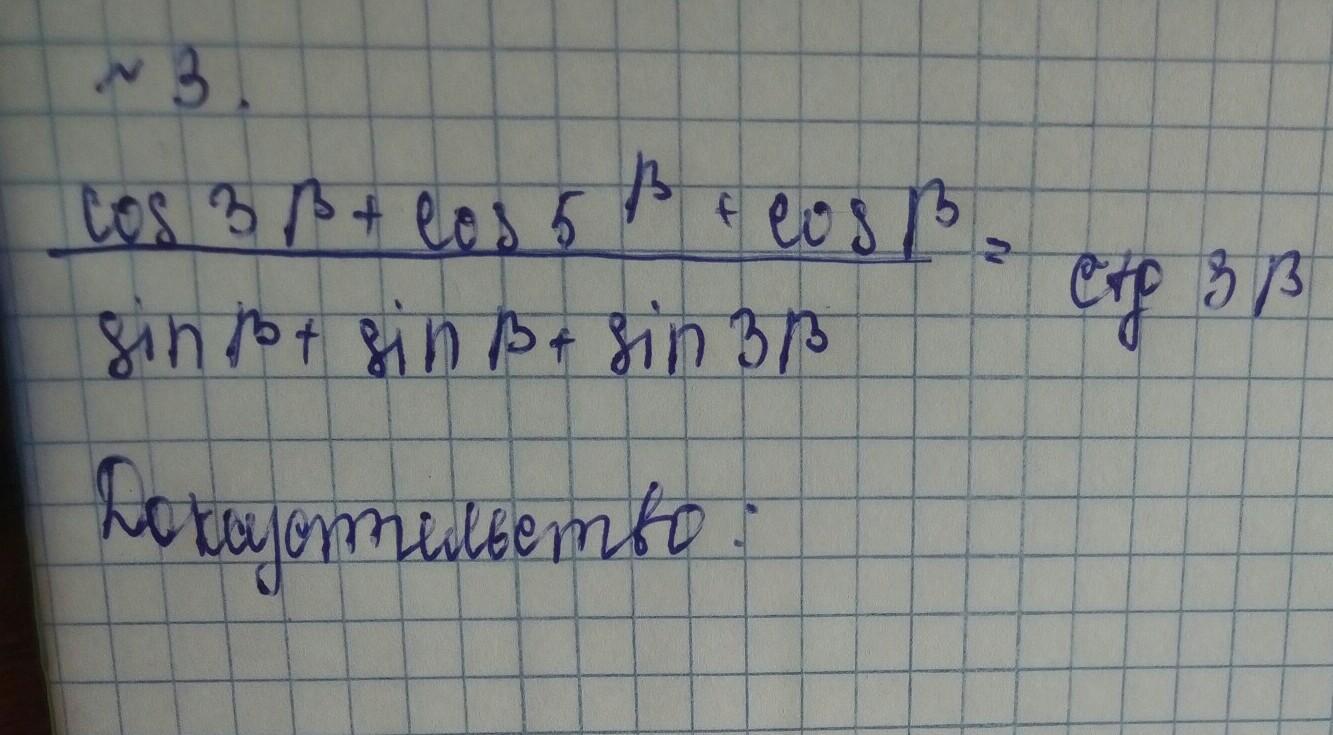 ~ 3.
cos 3β + cos 5β + cos β
sin β + sin β + sin 3β
= ctg 3β
Доказательство: